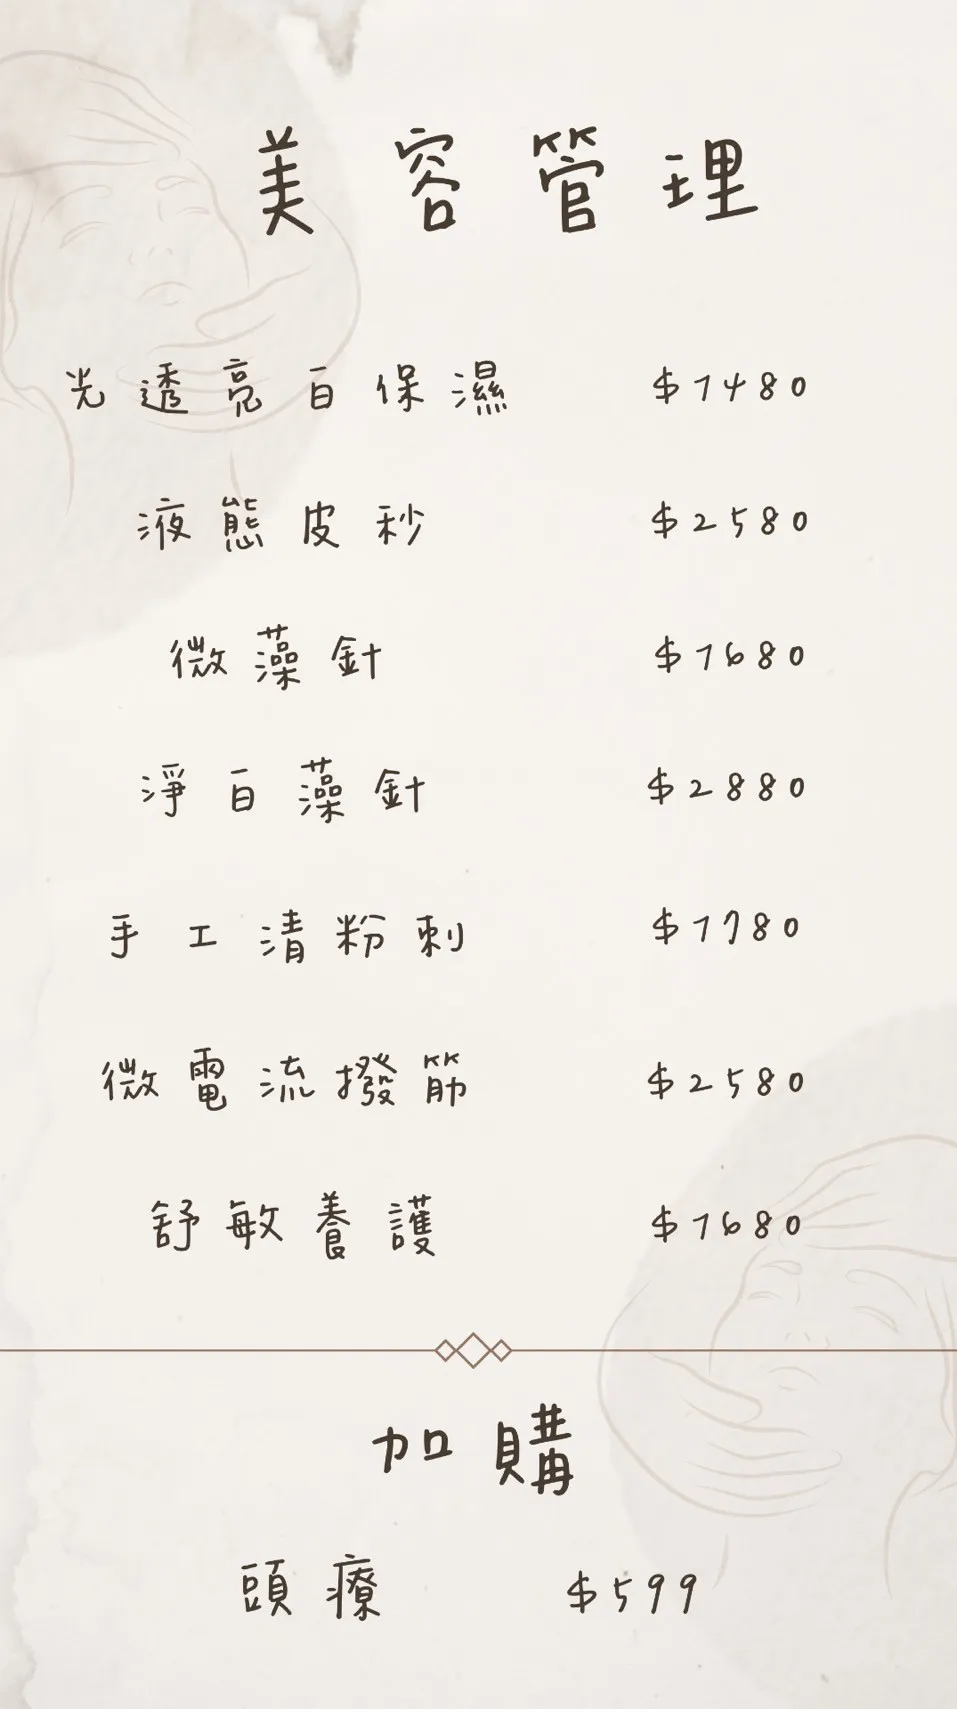 美容管理
光透亮白保濕 $1480
液態皮秒 $2580
微藻針 $1680
淨白藻針 $2880
手工清粉刺 $1780
微電流撥筋 $2580
舒敏養護 $1680
加購
頭療 $599